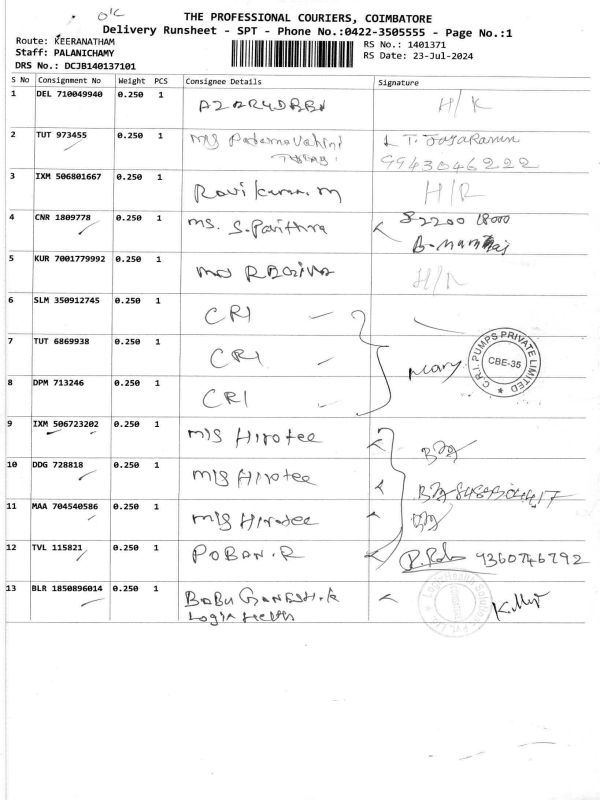 O/C
THE PROFESSIONAL COURIERS, COIMBATORE
Delivery Runsheet - SPT - Phone No.:0422-3505555 - Page No.:1
Route: KEERANATHAM
Staff: PALANICHAMY
DRS No.: DCJB140137101
RS No.: 1401371
RS Date: 23-Jul-2024
S No Consignment No Weight PCS Consignee Details Signature
1 DEL 710049940 0.250 1 H/R
2 TUT 973455 0.250 1 M/S T. Jayaraman
9943046222
3 IXM 506801667 0.250 1 Ravi kumar. m H/R
4 CNR 1809778 0.250 1 ms. S. Pavithra
5 KUR 7001779992 0.250 1 H/R
6 SLM 350912745 0.250 1 CRI
7 TUT 6869938 0.250 1 CRI
C.R.I. PUMPS PRIVATE LIMITED
CBE-35
8 DPM 713246 0.250 1 CRI
9 IXM 506723202 0.250 1 M/S Hirotec
10 DDG 728818 0.250 1 M/S Hirotec
11 MAA 704540586 0.250 1 M/S Hirotec
12 TVL 115821 0.250 1 POBAN.R 9360746792
13 BLR 1850896014 0.250 1 BABU GANESH.K
Logix Health